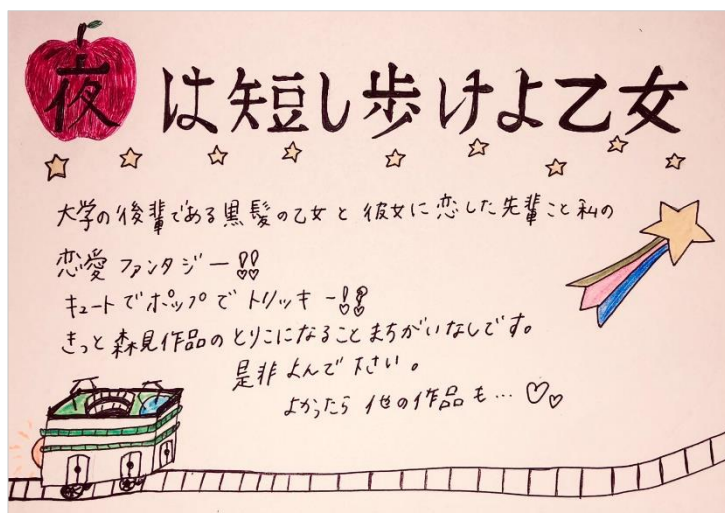 夜は短し歩けよ乙女
大学の後輩である黒髪の乙女と彼女に恋した先輩こと私の
恋愛ファンタジー!!
キュートでポップでトリッキー!!
きっと森見作品のとりこになることまちがいなしです。
是非よんで下さい。
よかったら他の作品も…♡♡